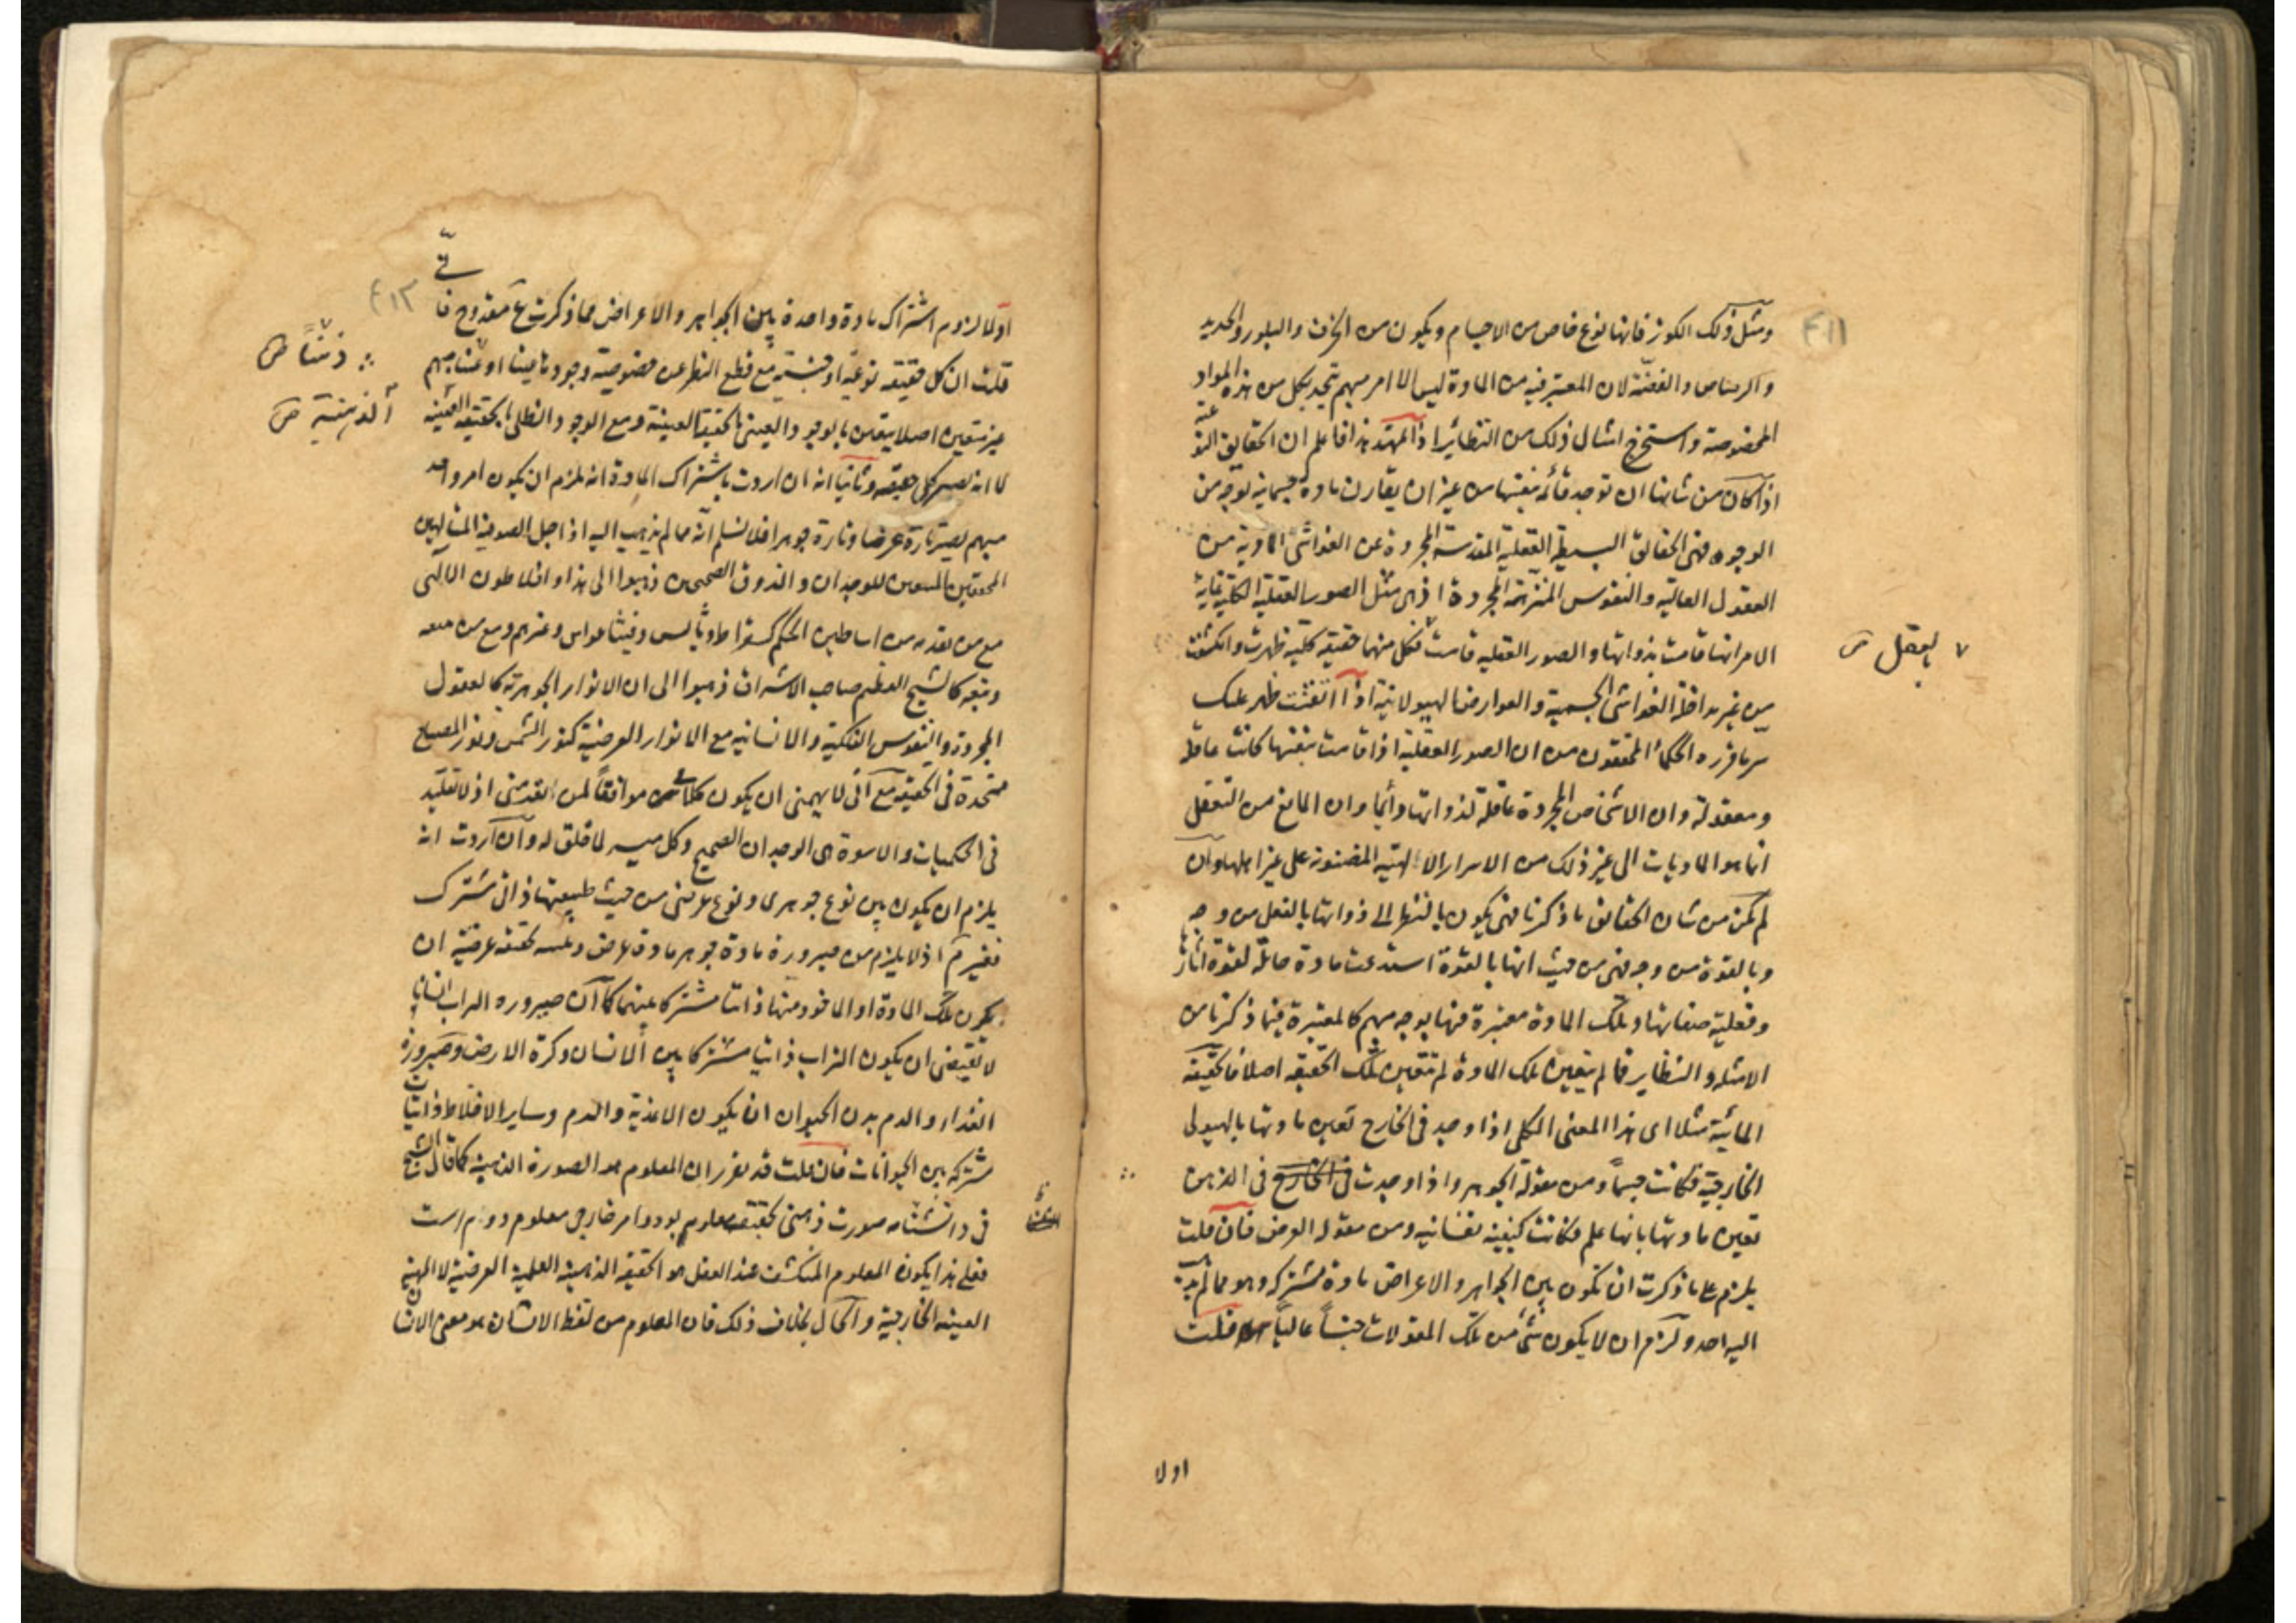 ومثل ذلك الكوز فانها نوع خاص من الاجسام ويكون من الخزف والبلور والحديد
والرصاص والفضة لان المعتبر فيه من المادة ليس الا امر مبهم يتحد بكل من هذه المواد
المخصوصة واستخرج امثال ذلك من النظائر اذا تمهد هذا فاعلم ان الحقايق النوعية
اذا كان من شانها ان توجد قائمة بنفسها من غير ان يقارن مادة جسمانية بوجه من
الوجوه فهى الحقائق البسيطة العقلية المقدسة المجردة عن الغواشى المادية من
العقول العالية والنفوس المنزهة المجردة اذ هى مثل الصور العقلية الكلية غاية
الامر انها قامت بذواتها والصور العقلية قامت فكل منهما حقيقة كلية ظهرت وانكشفت
بالعقل ص
من غير مداخلة الغواشى الجسمية والعوارض الهيولانية اذا اتقنت ظهر عليك
سر ما قرره الحكماء المحققون من ان الصور العقلية اذا قامت بنفسها كانت عاقلة
ومعقولة وان الاشخاص المجردة عاقلة لذواتها دائما وان المانع من التعقل
انما هو الماديات الى غير ذلك من الاسرار الالهية المضنونة على غير اهلها وان
لم يكن من شان الحقايق ما ذكرنا فهى يكون بالنظر الى ذواتها بالفعل من وجه
وبالقوة من وجه فهى من حيث انها بالقوة استدعت مادة حاملة لقوة اثارها
وفعلية صفاتها وتلك المادة معتبرة فيها بوجه مبهم كالمعتبرة فيما ذكرنا من
الامثلة والنظاير فما لم يتعين تلك المادة لم تتعين تلك الحقيقة اصلا فالحقيقة
المائية مثلا اى هذا المعنى الكلى اذا وجد فى الخارج تعين مادتها بالهيولى
الخارجية فكانت جسما ومن مقولة الجوهر واذا وجدت فى الخارج فى الذهن
تعين مادتها بانها علم فكانت كيفية نفسانية ومن مقولة العرض فان قلت
يلزم على ما ذكرت ان تكون بين الجواهر والاعراض مادة مشتركة وهو مما لم يذهب
اليه احد ولزم ان لا يكون شئ من تلك المقولات جنسا عاليا قلت
اولا
اولا لزوم اشتراك مادة واحدة بين الجواهر والاعراض مما ذكرت غير مقدوح فانى
قلت ان كل حقيقة نوعية او جنسية مع قطع النظر عن خصوصية وجودها عينا او ذهنا مبهم
ذهنا ص
غير متعين اصلا يتعين بالوجود العينى بالحقيقة العينية ومع الوجود الظلى بالحقيقة العينية
الذهنية ص
لا انه يصير كل حقيقة وثانيا انه ان اردت باشتراك المادة انه يلزم ان يكون امر واحد
مبهم يصير تارة عرضا وتارة جوهرا فلا نسلم انه مما لم يذهب اليه اذ اجل الصوفية المتالهين
المحققين المتبعين للوجدان والذوق الصحيحين ذهبوا الى هذا وافلاطون الالهى
مع من تقدمه من اساطين الحكم كسقراط وثاليس وفيثاغورس وغيرهم ومع من معه
وتبعه كالشيخ العظيم صاحب الاشراق ذهبوا الى ان الانوار الجوهرية كالعقول
المجردة والنفوس الفلكية والانسانية مع الانوار العرضية كنور الشمس ونور المصباح
متحدة فى الحقيقة مع انى لا يهمنى ان يكون كلامى موافقا لمن تقدمنى اذ لا تقليد
فى الحكميات والاسوة هى الوجدان الصحيح وكل ميسر لما خلق له وان اردت انه
يلزم ان يكون بين نوع جوهرى ونوع عرضى من حيث طبيعتها ذاتى مشترك
فغير لازم اذ لا يلزم من صيرورة مادة جوهر مادة عرض وعكسه حقيقة عرضية ان
يكون تلك المادة او الماخوذ منها ذاتيا مشتركا بينهما كما ان صيرورة التراب انسانا
لا تقتضى ان يكون التراب ذاتيا مشتركا بين الانسان وكرة الارض وصيرورة
الغذاء والدم بدن الحيوان ان يكون الاغذية والدم وساير الاخلاط ذاتيات
مشتركة بين الحيوانات فان قلت قد تقرر ان المعلوم هو الصورة الذهنية كما قال الشيخ
فى دانشنامه صورت ذهنى بحقيقت معلوم بود وامر خارجى معلوم دوم است
فعلى هذا يكون المعلوم المنكشف عند العقل هو الحقيقة الذهنية العلمية العرضية لا المهية
العينية الخارجية والحال بخلاف ذلك فان المعلوم من لفظ الانسان هو معنى الانسان